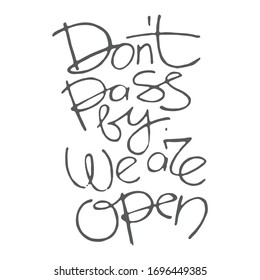 Don't
pass
by.
We are
open
shutterstock.com · 1696449385